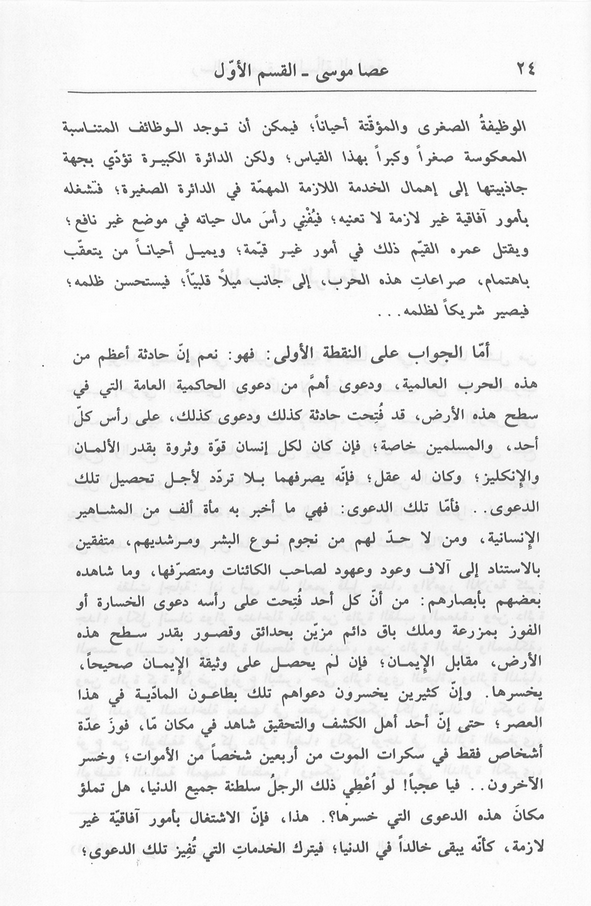 ٢٤
عصا موسى ـ القسم الأوّل
الوظيفةُ الصغرى والمؤقّتة أحياناً؛ فيمكن أن تـوجد الـوظائف المتنـاسبة
المعكوسة صغراً وكبراً بهذا القياس؛ ولكن الدائرة الكبيـرة تؤدّي بجهة
جاذبيتها إلى إهمال الخدمة اللازمة المهمّة في الدائرة الصغيرة؛ فتشغله
بأمور آفاقية غير لازمة لا تعنيه؛ فيُفْنِي رأسَ مال حياته في موضع غير نافع؛
ويقتل عمره القيّم ذلك في أمور غيـر قيّمة؛ ويميـل أحيانـاً من يتعقّب
باهتمام، صراعاتِ هذه الحرب، إلى جانب ميلاً قلبيّاً؛ فيستحسن ظلمه؛
فيصير شريكاً لظلمه...
أمّا الجواب على النقطة الأولى: فهو: نعم إنّ حادثة أعظم من
هذه الحرب العالمية، ودعوى أهمَّ من دعوى الحاكمية العامة التي في
سطح هذه الأرض، قد فُتِحت حادثة كذلك ودعوى كذلك، على رأس كلّ
أحد، والمسلمين خاصة؛ فإن كان لكل إنسان قوّة وثروة بقدر الألمـان
والإنكليز؛ وكان له عقل؛ فإنّه يصرفهما بـلا تردّد لأجـل تحصيل تلك
الدعوى.. فأمّا تلك الدعوى: فهي ما أخبر به مأة ألف من المشـاهير
الإنسانية، ومن لا حـدّ لهم من نجوم نـوع البشر ومـرشديهم، متفقين
بالاستناد إلى آلاف وعود وعهود لصاحب الكائنات ومتصرّفها، وما شاهده
بعضهم بأبصارهم: من أنّ كل أحد فُتِحت على رأسه دعوى الخسارة أو
الفوز بمزرعة وملك باق دائم مزيّن بحدائق وقصـور بقدر سـطح هذه
الأرض، مقابل الإيمـان؛ فإن لم يحصل على وثيقة الإيمان صحيحاً،
يخسرها. وإنّ كثيرين يخسرون دعواهم تلك بطـاعون المادّيـة في هذا
العصر؛ حتى إنّ أحد أهل الكشف والتحقيق شاهد في مكان مّا، فوزَ عدّة
أشخاص فقط في سكرات الموت من أربعين شخصاً من الأموات؛ وخسر
الآخرون.. فيا عجباً! لو اُعْطِي ذلك الرجلُ سلطنة جميع الدنيا، هل تملؤ
مكانَ هذه الدعوى التي خسرها؟. هذا، فإنّ الاشتغال بأمور آفاقيّة غير
لازمة، كأنّه يبقى خالداً في الدنيا؛ فيترك الخدماتِ التي تُفِيز تلك الدعوى؛